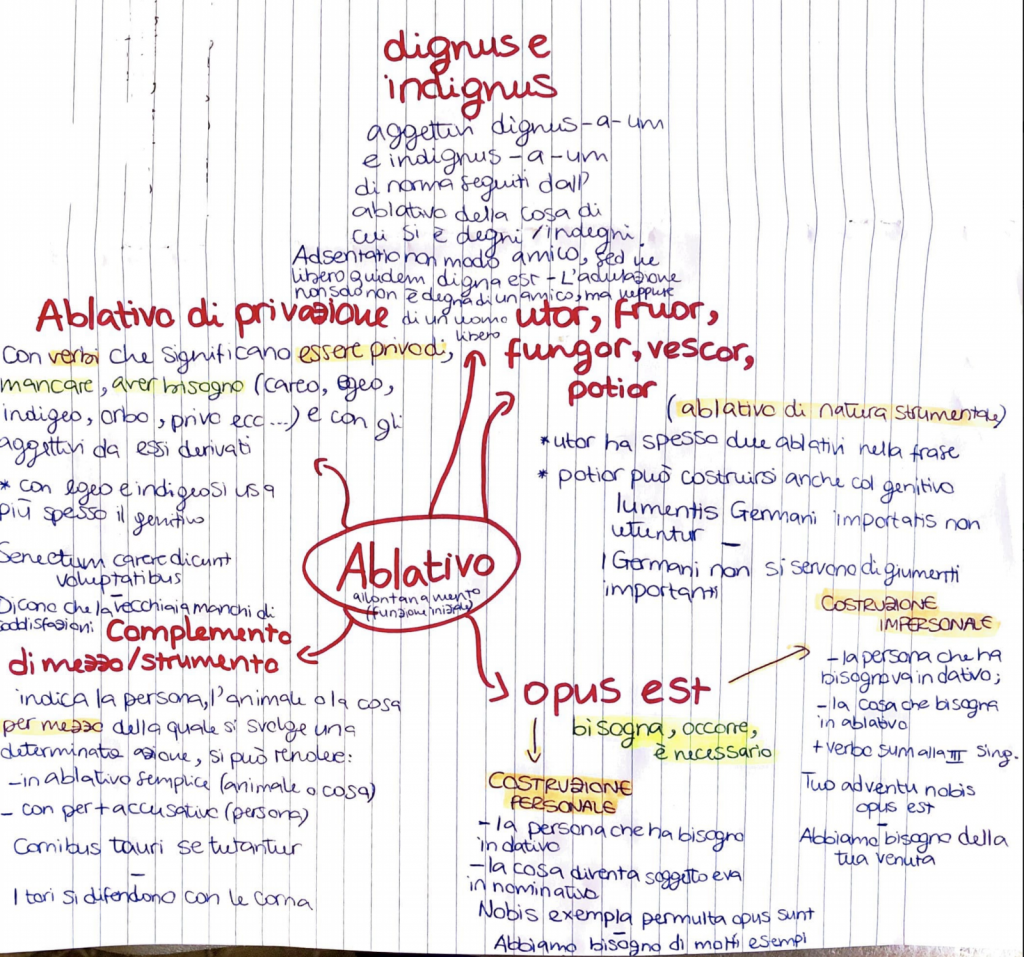 dignus e
indignus
aggettivi dignus-a-um
e indignus-a-um
di norma seguiti dall'
ablativo della cosa di
cui si è degni/indegni
Adsentatio non modo amico, sed ne
libero quidem digna est - L'adulazione
non solo non è degna di un amico, ma neppure
di un uomo
libero
Ablativo di privazione
con verbi che significano essere privo di,
mancare, aver bisogno (careo, egeo,
indigeo, orbo, privo ecc...) e con gli
aggettivi da essi derivati
* con egeo e indigeo si usa
più spesso il genitivo
Senectum carere dicunt
voluptatibus
-
Dicono che la vecchiaia manchi di
soddisfazioni
utor, fruor,
fungor, vescor,
potior
(ablativo di natura strumentale)
* utor ha spesso due ablativi nella frase
* potior può costruirsi anche col genitivo
Iumentis Germani importatis non
utuntur
-
I Germani non si servono di giumenti
importanti
Ablativo
allontanamento
(funzione iniziale)
Complemento
di mezzo/strumento
indica la persona, l'animale o la cosa
per mezzo della quale si svolge una
determinata azione, si può rendere:
- in ablativo semplice (animale o cosa)
- con per + accusativo (persona)
Cornibus tauri se tutantur
-
I tori si difendono con le corna
opus est
bisogna, occorre,
è necessario
COSTRUZIONE
PERSONALE
- la persona che ha bisogno
in dativo
- la cosa diventa soggetto e va
in nominativo
Nobis exempla permulta opus sunt
-
Abbiamo bisogno di molti esempi
COSTRUZIONE
IMPERSONALE
- la persona che ha
bisogno va in dativo;
- la cosa che bisogna
in ablativo
+ verbo sum alla III sing.
Tuo adventu nobis
opus est
-
Abbiamo bisogno della
tua venuta